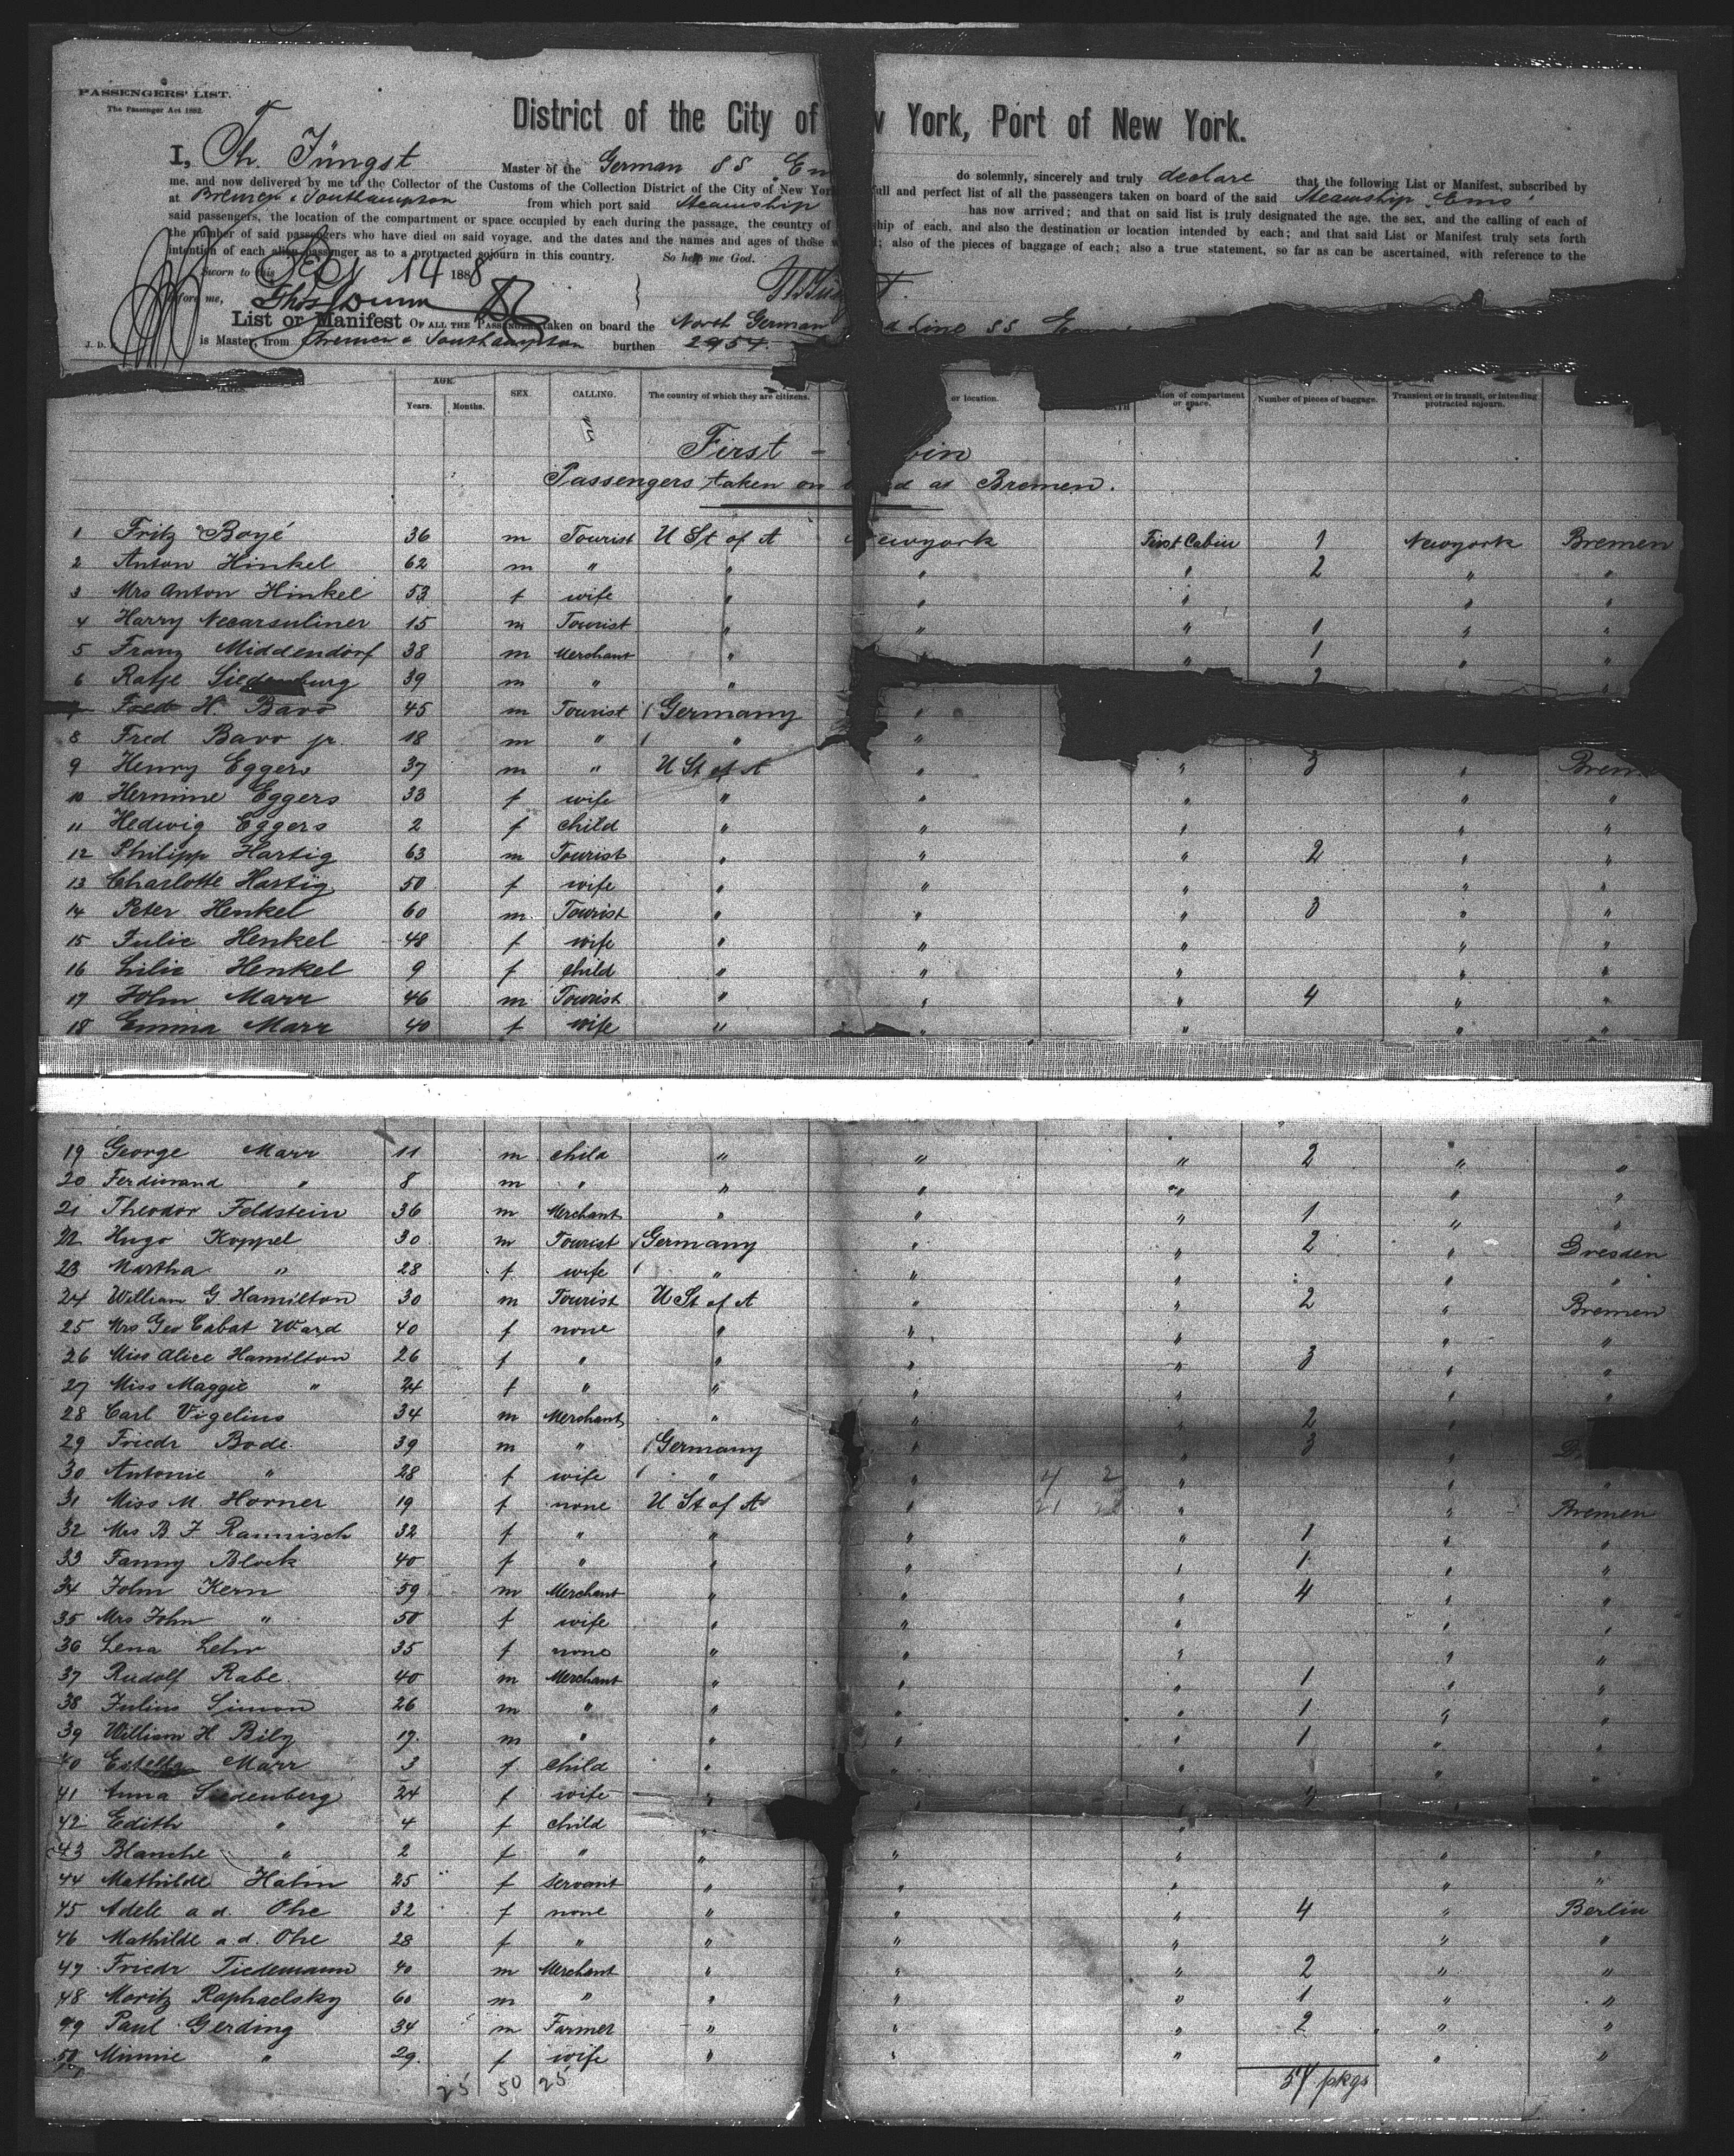 PASSENGERS' LIST.
The Passenger Act 1882.
District of the City of w York, Port of New York.
I, Th. Jüngst Master of the German SS Em do solemnly, sincerely and truly declare that the following List or Manifest, subscribed by
me, and now delivered by me to the Collector of the Customs of the Collection District of the City of New Yor full and perfect list of all the passengers taken on board of the said Steamship Ems
at Bremen & Southampton from which port said Steamship has now arrived; and that on said list is truly designated the age, the sex, and the calling of each of
said passengers, the location of the compartment or space occupied by each during the passage, the country of hip of each, and also the destination or location intended by each; and that said List or Manifest truly sets forth
the number of said passengers who have died on said voyage, and the dates and the names and ages of those ; also of the pieces of baggage of each; also a true statement, so far as can be ascertained, with reference to the
intention of each alien passenger as to a protracted sojourn in this country. So help me God.
Sworn to this Sept 14 1888
before me, Thos Dunn
List or Manifest OF ALL THE PASSENGERS taken on board the North German Line SS
is Master, from Bremen & Southampton burthen 2954
J. D.
AGE. SEX CALLING. The country of which they are citizens. or location. of compartment or space. Number of pieces of baggage. Transient or in transit, or intending protracted sojourn.
Years. Months.
First - bin
Passengers taken on d at Bremen.
1 Fritz Boyé 36 m Tourist U St of A Newyork First Cabin 1 Newyork Bremen
2 Anton Hinkel 62 m " " " " 2 " "
3 Mrs Anton Hinkel 53 f wife " " " " "
4 Harry Necarsuliner 15 m Tourist " " " 1 " "
5 Franz Middendorf 38 m Merchant " " 1 " "
6 Ratje 39 m " " 2 "
Fred H. Bavo 45 m Tourist Germany "
8 Fred Bavo jr. 18 m " " "
9 Henry Eggers 37 m " U St of A " " 3 " Brem
10 Hermine Eggers 33 f wife " " " " "
11 Hedwig Eggers 2 f child " " " " "
12 Philipp Hartig 63 m Tourist " " " 2 " "
13 Charlotte Hartig 50 f wife " " " " "
14 Peter Henkel 60 m Tourist " " " 3 " "
15 Julie Henkel 48 f wife " " " " "
16 Lilie Henkel 9 f child " " " " "
17 John Marr 46 m Tourist " " " 4 " "
18 Emma Marr 40 f wife " " " " "
19 George Marr 11 m child " " " 2 " "
20 Ferdinand " 8 m " " " " " "
21 Theodor Feldstein 36 m Merchant " " " 1 " "
22 Hugo Koppel 30 m Tourist Germany " " 2 " Dresden
23 Martha " 28 f wife " " " " "
24 William G. Hamilton 30 m Tourist U St of A " " 2 " Bremen
25 Mrs Geo Cabat Ward 40 f none " " " " "
26 Miss Alice Hamilton 26 f " " " " 3 " "
27 Miss Maggie " 24 f " " " " " "
28 Carl Vigelius 34 m Merchant " " " 2 "
29 Friedr Bode 39 m " Germany " " 3 " D
30 Antonie " 28 f wife " " 4 2 " " "
31 Miss M. Horner 19 f none U St of A " 21 " " Bremen
32 Mrs B F Rannisch 32 f " " " " 1 " "
33 Fanny Block 40 f " " " " 1 " "
34 John Kern 59 m Merchant " " " 4 " "
35 Mrs John " 50 f wife " " " " "
36 Lena Lehr 35 f none " " " " "
37 Rudolf Rabe 40 m Merchant " " " 1 " "
38 Julius Simon 26 m " " " " 1 " "
39 William H Bily 19 m " " " " 1 " "
40 Estella Marr 3 f child " " " " "
41 Anna Siedenberg 24 f wife " " "
42 Edith " 4 f child " "
43 Blanche " 2 f " " " " " "
44 Mathilde Hahn 25 f Servant " " " " "
45 Adele a.d. Ohe 32 f none " " " 4 " Berlin
46 Mathilde a.d. Ohe 28 f " " " " " "
47 Friedr Tiedemann 40 m Merchant " " " 2 " "
48 Moritz Raphaelsky 60 m " " " " 1 " "
49 Paul Gerding 34 m Farmer " " " 2 " "
50 Minnie " 29 f wife " " " " "
25 50 25 57 pkgs